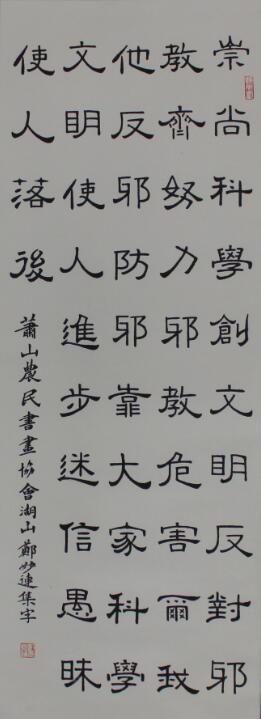 崇尚科學創文明反對邪
教齊努力邪教危害爾我
他反邪防邪靠大家科學
文明使人進步迷信愚昧
使人落後
蕭山農民書畫協會湖山鄭妙連集字